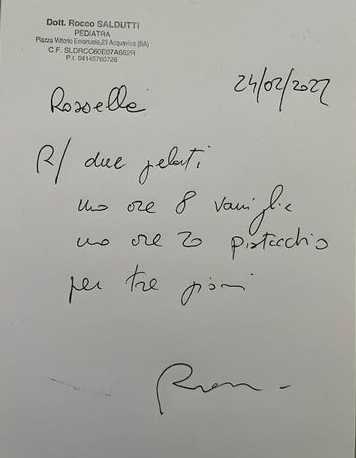 Dott. Rocco SALDUTTI
PEDIATRA
Piazza Vittorio Emanuele,21 Acquaviva (BA)
C.F. SLDRCC60E07A662R
P.I. 04145760728
24/02/2022
Rossella
R/ due gelati
uno ore 8 vaniglia
uno ore 20 pistacchio
per tre giorni